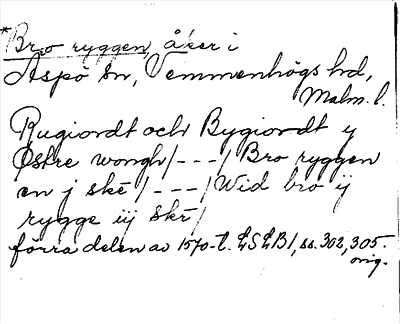 *Bro ryggen, åker i
Aspö sn, Vemmenhögs hd,
Malm. l.
Rugiordt och Bygiordt y
Østre wongh/---/ Bro ryggen
en j skē /---/ Wid bro ÿ
rygge iij skē/
förra delen av 1570-t. LSLB1, ss. 302, 305.
orig.